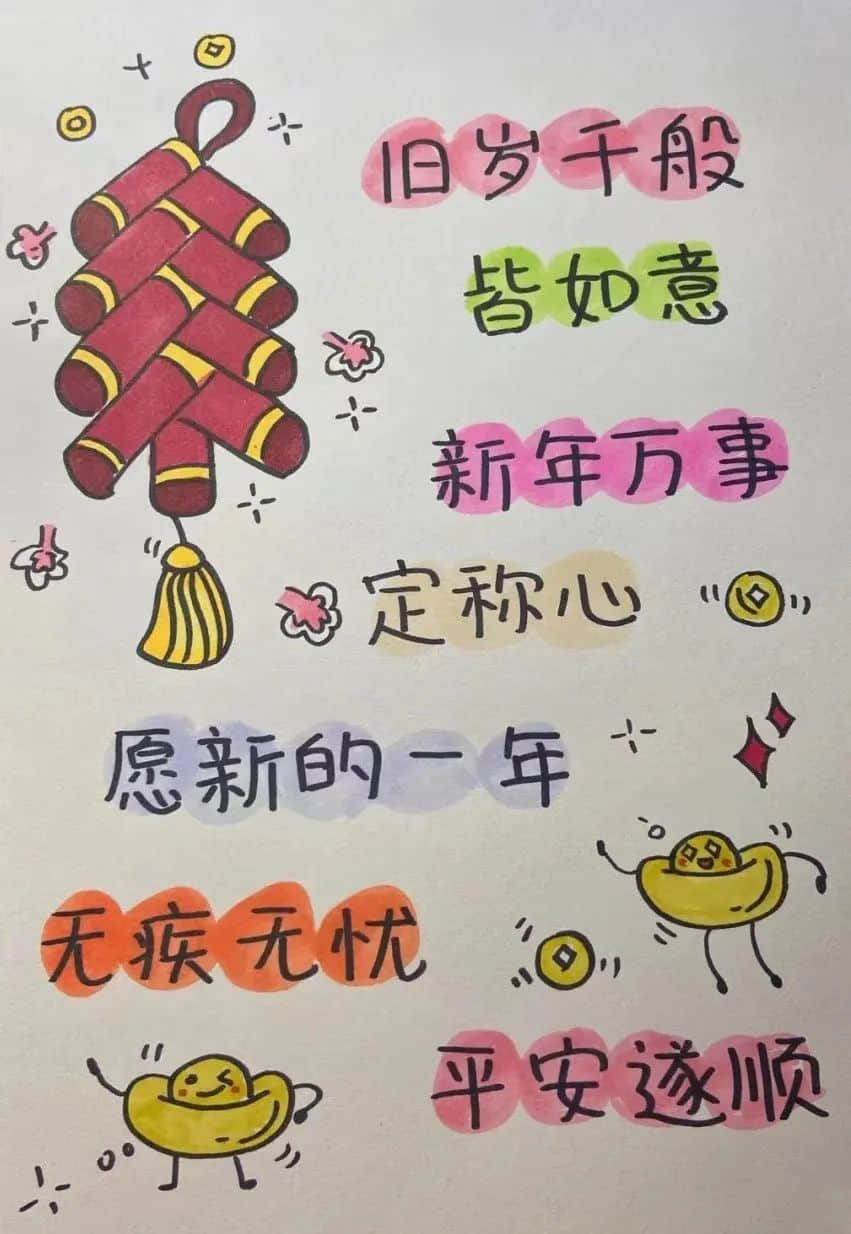 旧岁千般
皆如意
新年万事
定称心
愿新的一年
无疾无忧
平安遂顺